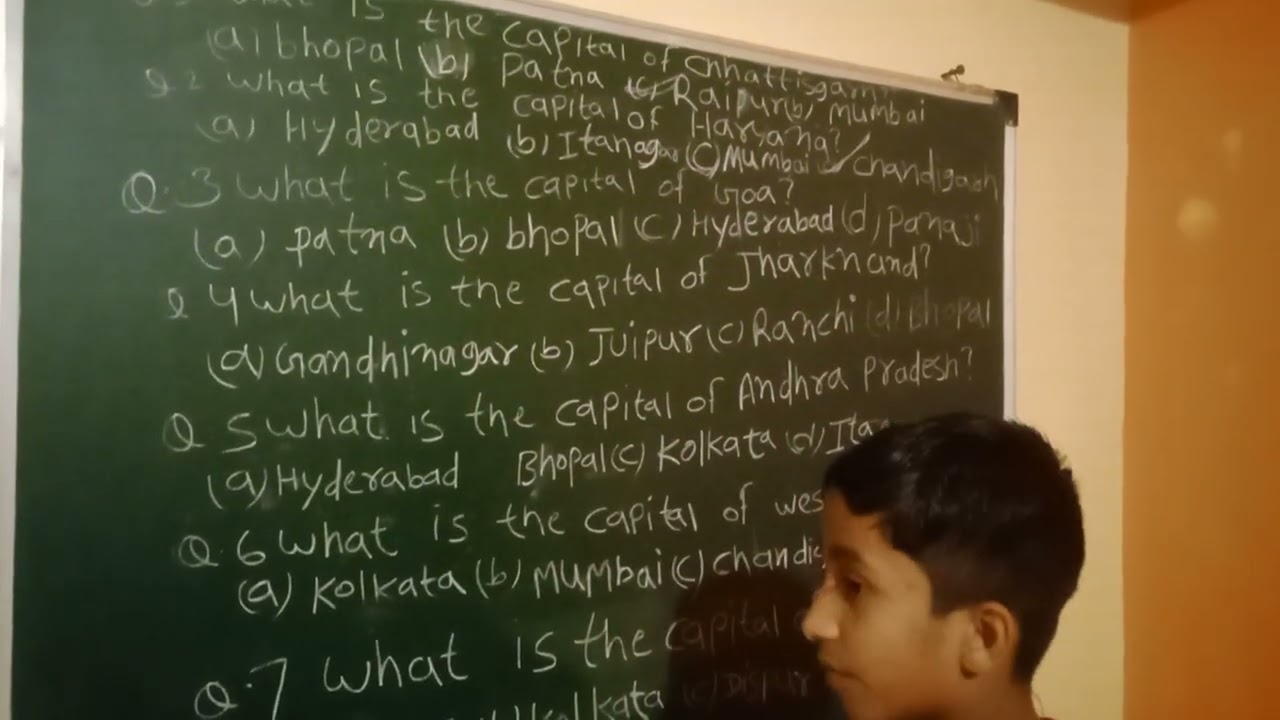 is the capital of Chhattisgarh
(a) bhopal (b) patna (c) Raipur (b) mumbai
Q 2 What is the capital of Haryana?
(a) Hyderabad (b) Itanagar (C) Mumbai ✓ chandigarh
Q.3 What is the capital of Goa?
(a) patna (b) bhopal (C) Hyderabad (d) panaji
Q 4 what is the capital of Jharkhand?
(a) Gandhinagar (b) Juipur (c) Ranchi (d) Bhopal
Q 5 What is the capital of Andhra Pradesh?
(a) Hyderabad Bhopal (c) Kolkata (d) Itan
Q.6 What is the capital of wes
(a) Kolkata (b) MUMbai (c) chandig
Q.7 What is the capital
Kolkata (c) Dispur